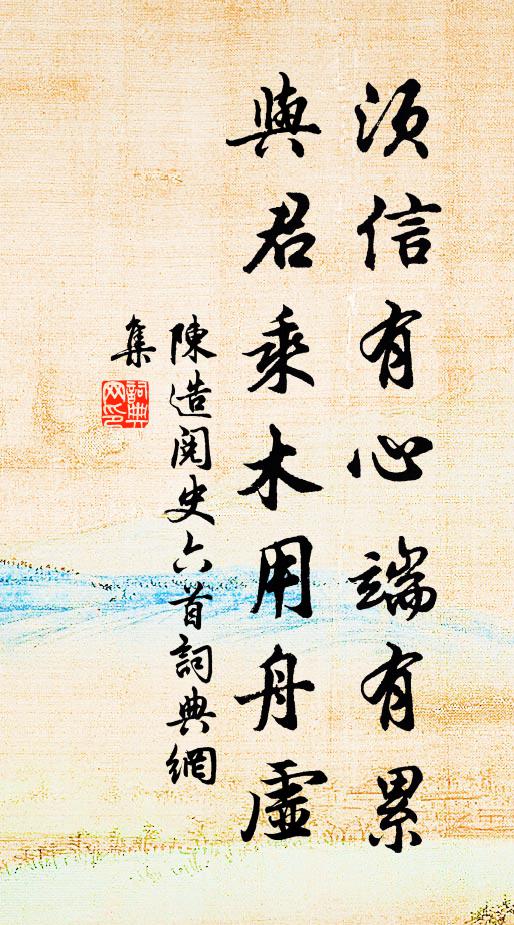 須信有心端有累
與君乘木用舟虛
陳造閱史六首詞典網
集
詞典網印